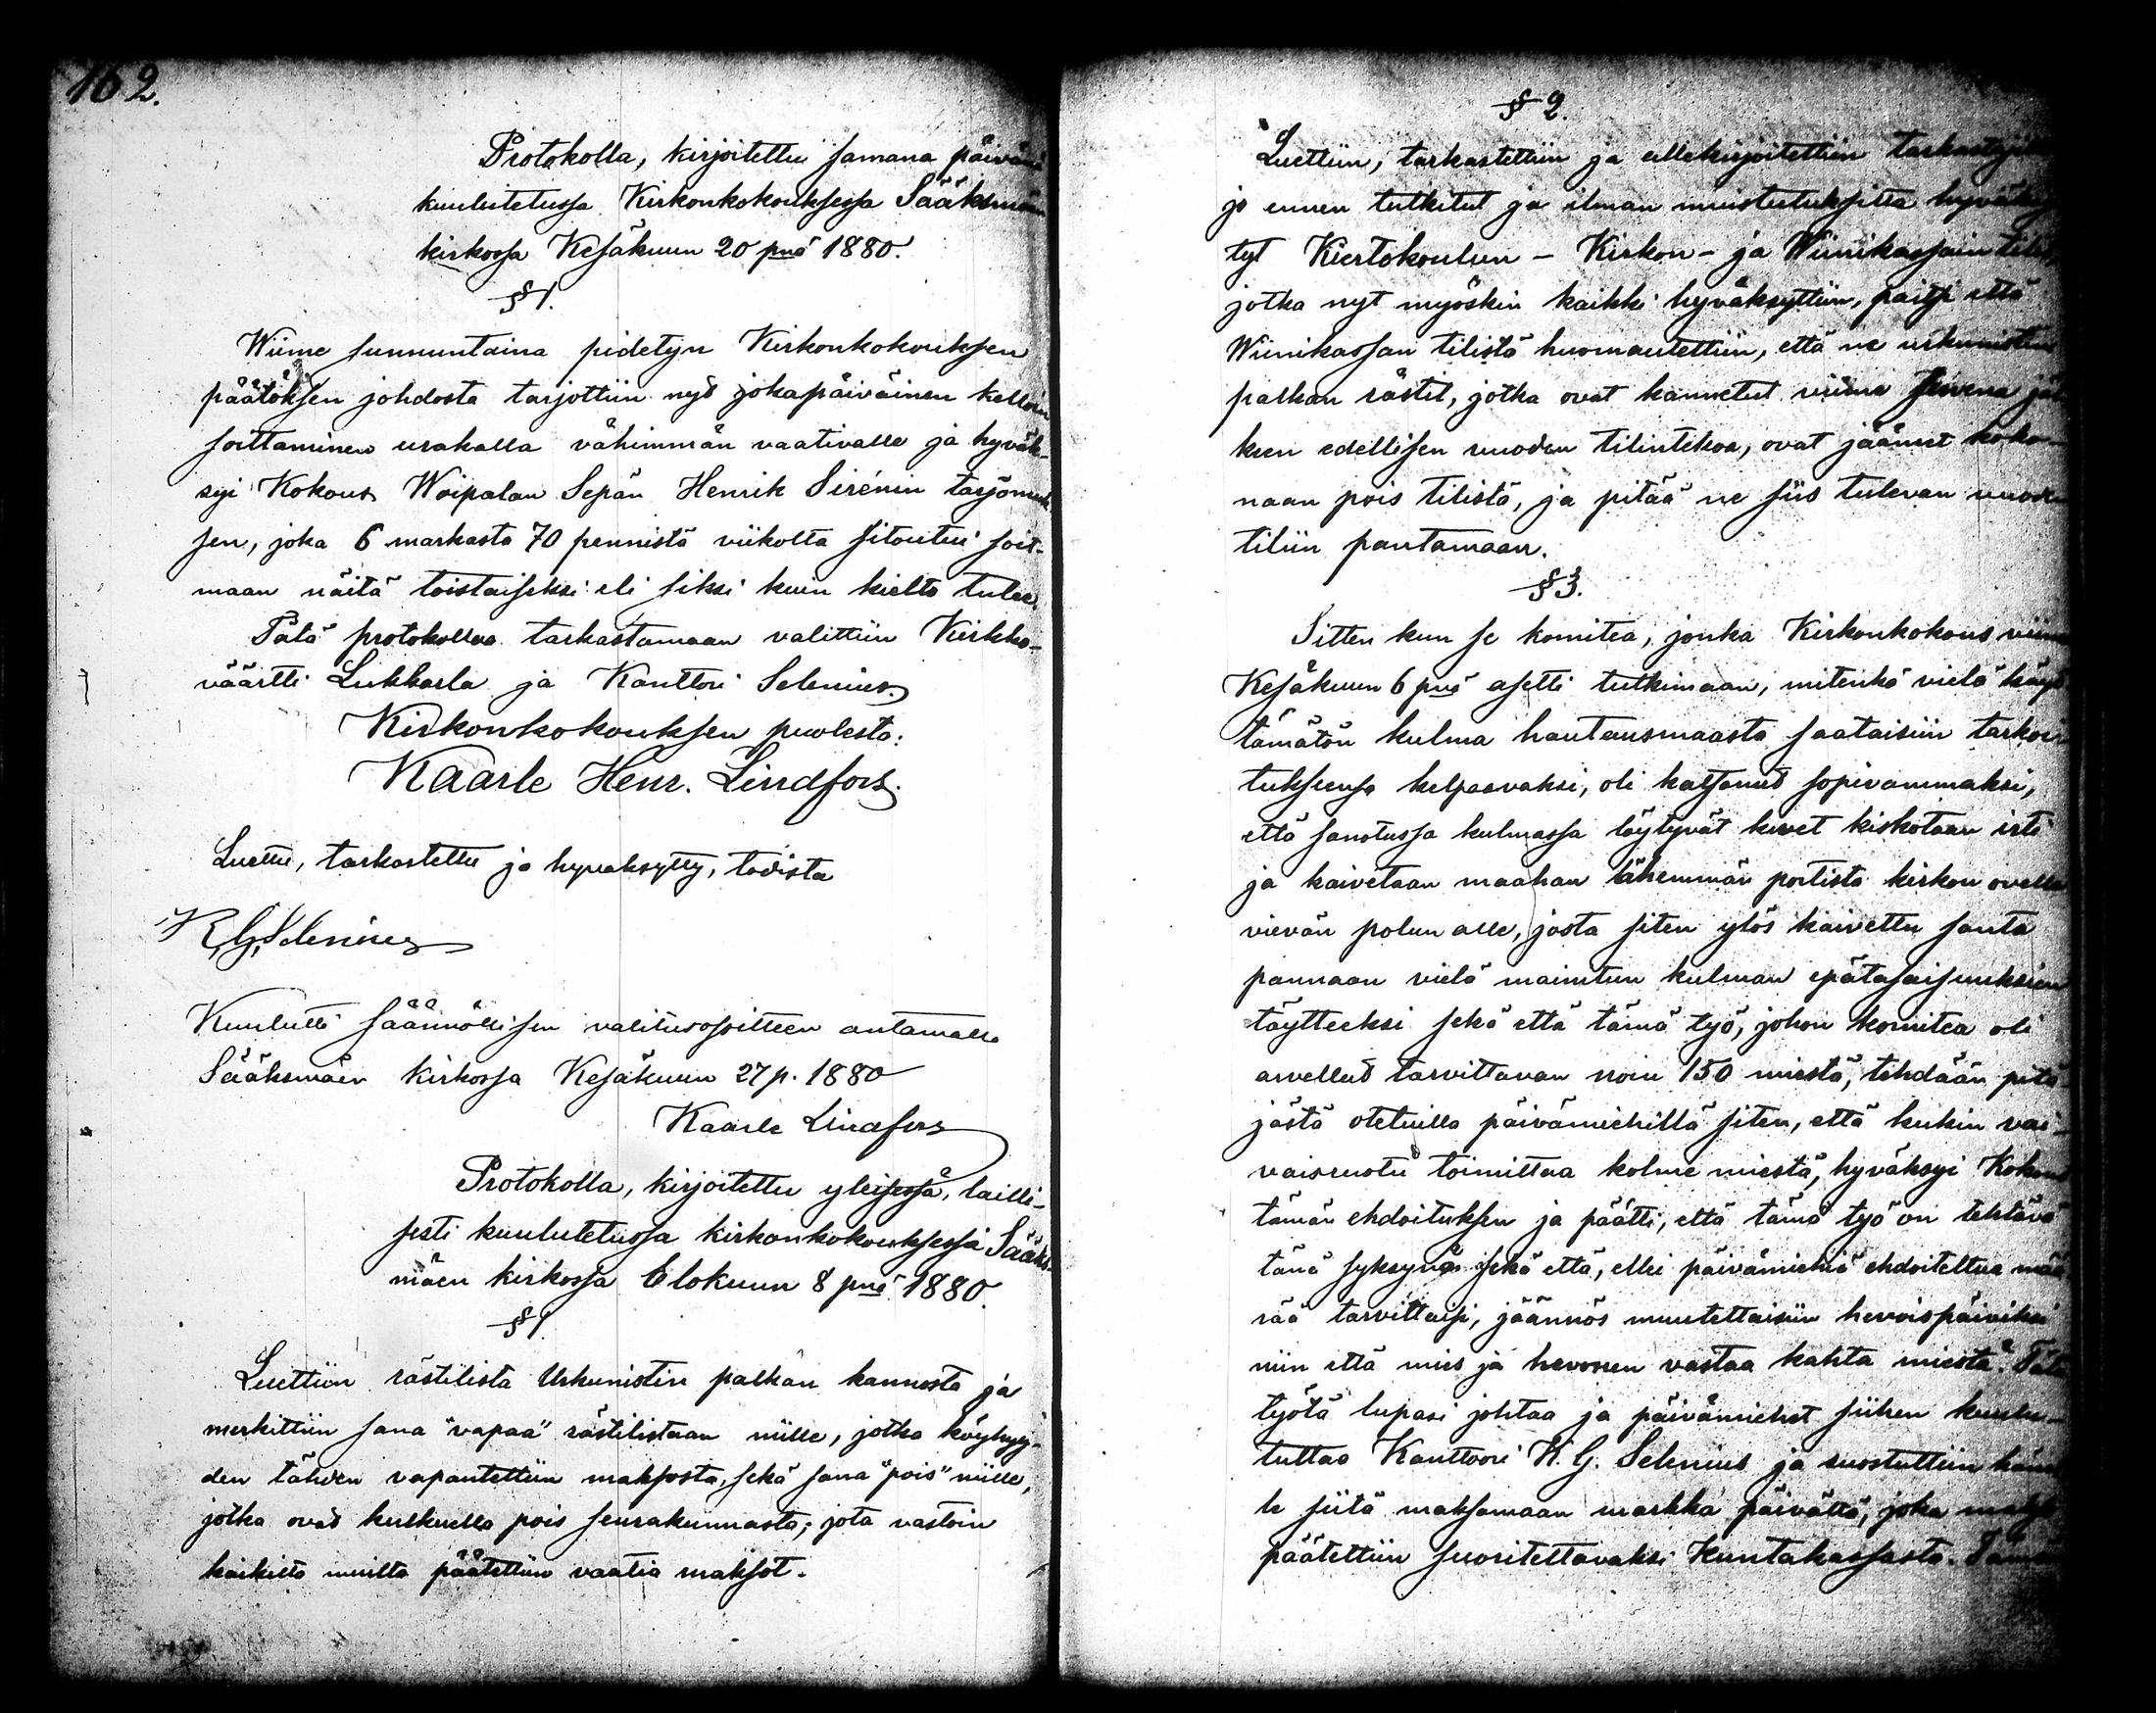 162.
Protokolla, kirjoitettu samana päivänä
kuulutetussa Kirkonkokouksessa Sääksmäen
kirkossa Kesäkuun 20 pnä 1880.
§ 1.
Wiime sunnuntaina pidetyn Kirkonkokouksen
päätöksen johdosta tarjottiin nyt jokapäiväinen kellon
soittaminen urakalla vähimmän vaativalle ja hyväk-
syi Kokous Woipalan Sepän Henrik Sirénin tarjomuk-
sen, joka 6 markasta 70 pennistä viikolta sitoutui soit-
maan näitä toistaiseksi eli siksi kuin kielto tulee.
Tätä protokollaa tarkastamaan valittiin Kirkko-
väärtti Lukkarla ja Kanttori Selenius.
Kirkonkokouksen puolesta:
Kaarle Henr. Lindfors.
Luettu, tarkastettu ja hyväksytty, todista
K. G. Selenius
Kuulutti säännöllisen valitusosoitteen antamalla
Sääksmäen kirkossa Kesäkuun 27 p. 1880
Kaarle Lindfors
Protokolla, kirjoitettu yleisessä, lailli-
sesti kuulutetussa kirkonkokouksessa Sääks-
mäen kirkossa Elokuun 8 pnä 1880.
§ 1.
Luettiin rästilista Urkunistin palkan kannosta ja
merkittiin sana "vapaa" rästilistaan niille, jotka köyhyy-
den tähden vapautettiin maksosta, sekä sana "pois" niille,
jotka ovat kulkuella pois seurakunnasta; jota vastoin
kaikilta muilta päätettiin vaatia maksot.
§ 2.
Luettiin, tarkastettiin ja allekirjoitettiin tarkastajain
jo ennen tutkitut ja ilman muistutuksitta hyväksy-
tyt Kiertokoulun - Kirkon - ja Wiinikassain tilit,
jotka nyt myöskin kaikki hyväksyttiin, paitsi että
Wiinikassan tilistä huomautettiin, että ne urkunistin
palkan rästit, jotka ovat kannetut viime suvena jäl-
keen edellisen vuoden tilintekoa, ovat jääneet koko-
naan pois tilistä, ja pitää ne siis tulevan vuoden
tiliin pantamaan.
§ 3.
Sitten kun se komitea, jonka Kirkonkokous viime
Kesäkuun 6 pnä asetti tutkimaan, mitenkä vielä käyt-
tämätön kulma hautausmaasta saataisiin tarkoi-
tukseensa kelpaavaksi, oli katsonut sopivammaksi,
että sanotussa kulmassa löytyvät kivet kiskotaan irti
ja kaivetaan maahan lähemmän portista kirkon ovelle
vievän polun alle, josta siten ylös kaivettu santa
pannaan vielä mainitun kulman epätasaisuuksien
täytteeksi sekä että tämä työ, johon komitea oli
arvellut tarvittavan noin 150 miestä, tehdään pitä-
jästä otetuilla päivämiehillä siten, että kukin vai-
vaisruotu toimittaa kolme miestä, hyväksyi Kokous
tämän ehdoituksen ja päätti, että tämä työ on tehtävä
tänä syksynä sekä että, ellei päivämiehiä ehdoiteltua mää-
rää tarvittaisi, jäännös muutettaisiin hevoispäiviksi
niin että mies ja hevonen vastaa kahta miestä. Tätä
työtä lupasi johtaa ja päivämiehet siihen kuulu-
tuttaa Kanttori K. G. Selenius ja suostuttiin hänel-
le siitä maksamaan markka päivältä, joka makso
päätettiin suoritettavaksi Kuntakassasta. Tämän